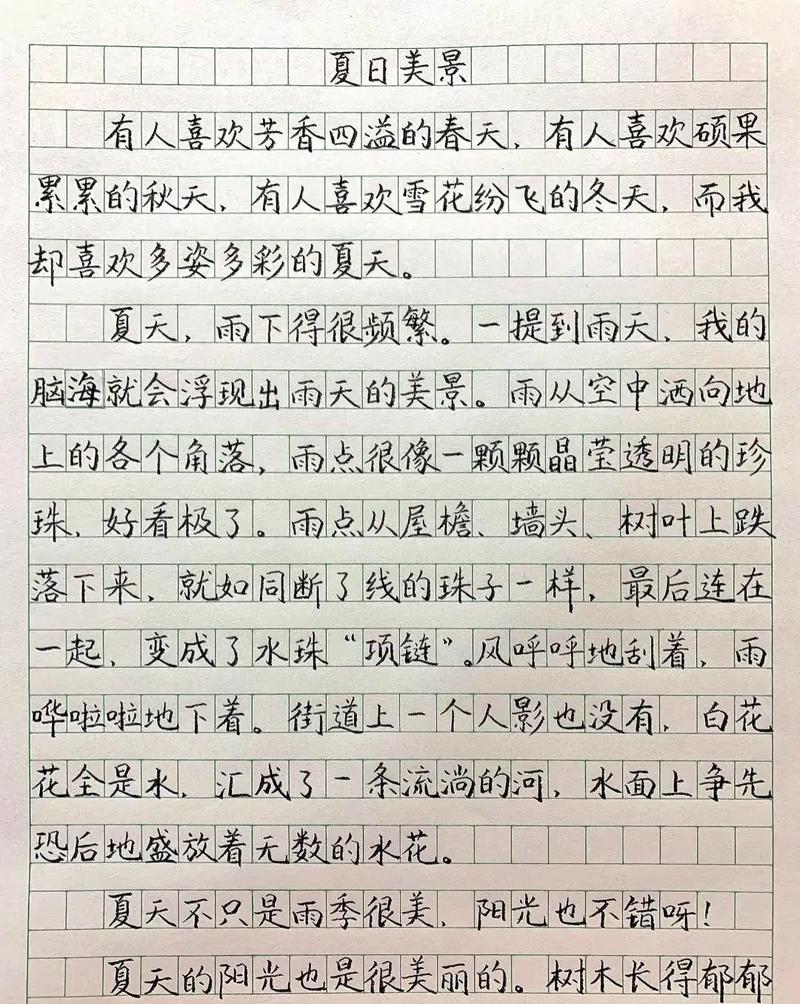 夏日美景
有人喜欢芳香四溢的春天，有人喜欢硕果
累累的秋天，有人喜欢雪花纷飞的冬天，而我
却喜欢多姿多彩的夏天。
夏天，雨下得很频繁。一提到雨天，我的
脑海就会浮现出雨天的美景。雨从空中洒向地
上的各个角落，雨点很像一颗颗晶莹透明的珍
珠，好看极了。雨点从屋檐、墙头、树叶上跌
落下来，就如同断了线的珠子一样，最后连在
一起，变成了水珠“项链”。风呼呼地刮着，雨
哗啦啦地下着。街道上一个人影也没有，白花
花全是水，汇成了一条流淌的河，水面上争先
恐后地盛放着无数的水花。
夏天不只是雨季很美，阳光也不错呀！
夏天的阳光也是很美丽的。树木长得郁郁